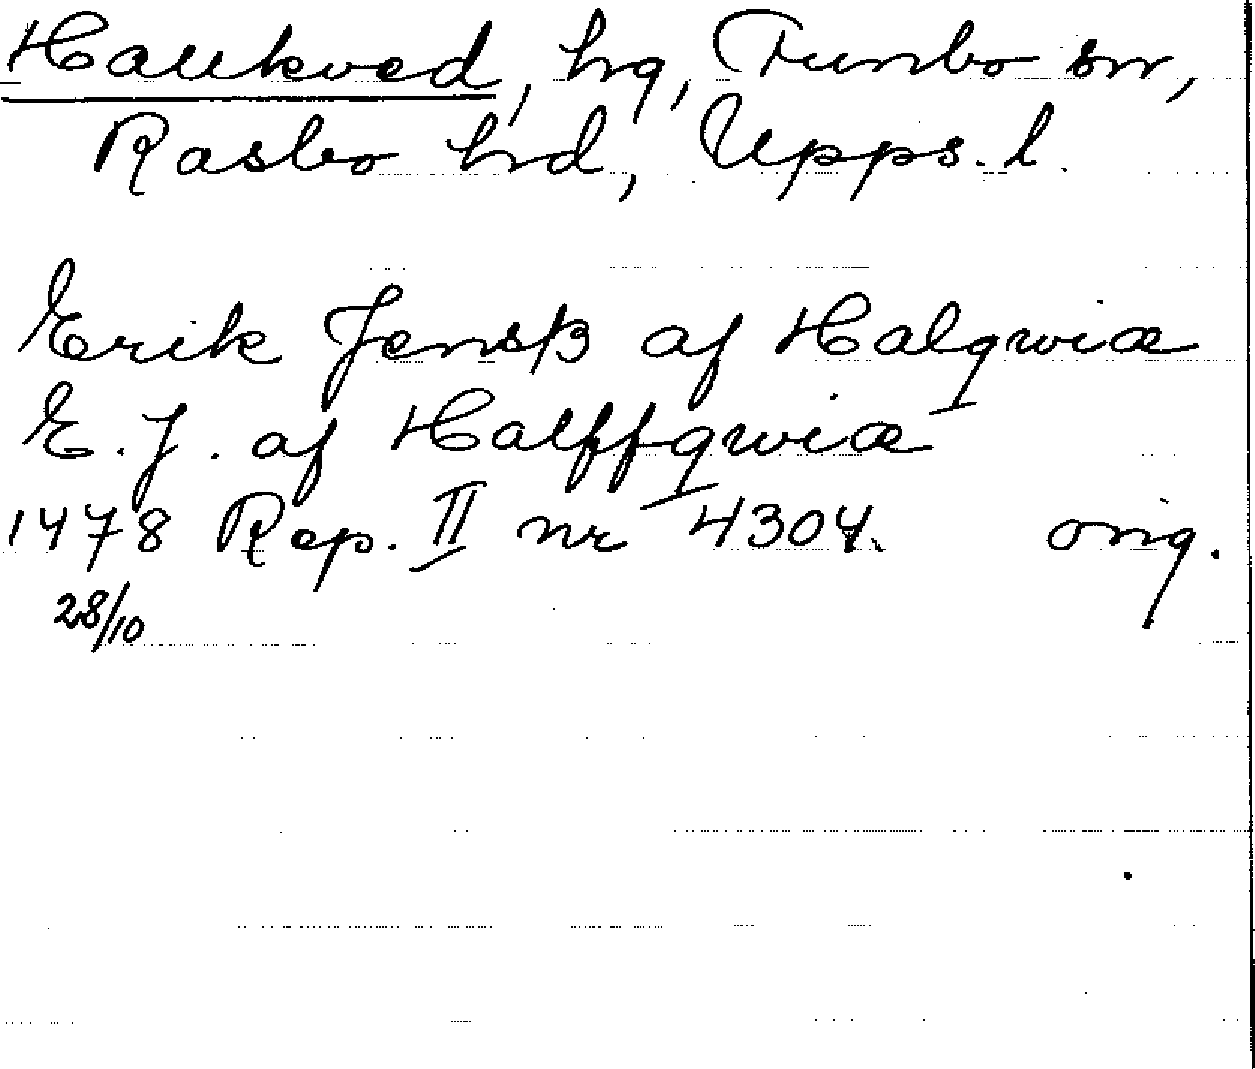 Haukved, hg, Funbo sn,
Rasbo hd, Upps. l.
Erik Jensß af Halqwiæ
E. J. af Halffqwiæ
1478 Rep. II nr 4304. orig.
28/10